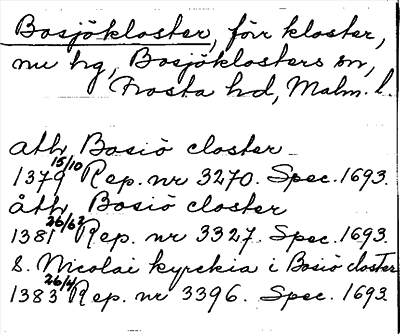 Bosjökloster, förr kloster,
nu hg, Bosjöklosters sn,
Frosta hd, Malm. l.
ath Bosiö closter
1379 15/10 Rep. nr 3270. Spec. 1693.
åth Bosiö closter
1381 26/6 Rep. nr 3327. Spec. 1693.
S. Nicolai kyrckia i Bosiö closter
1383 26/4 Rep. nr 3396. Spec. 1693